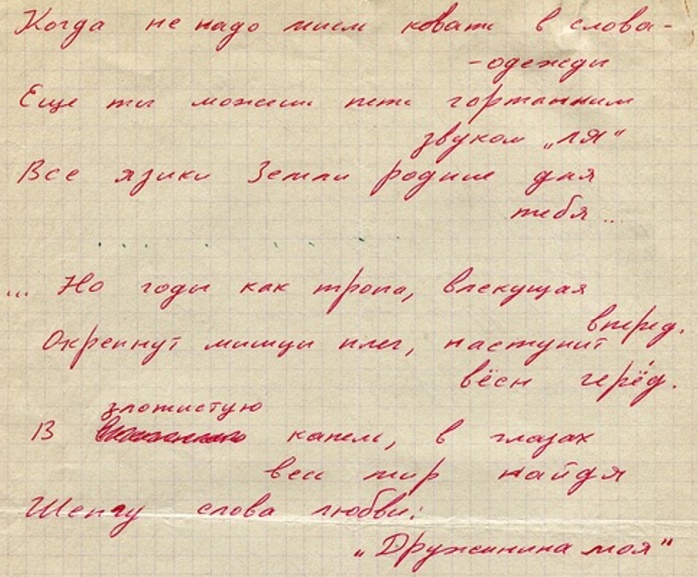 Когда не надо мысль ковать в слова-
-одежды
Еще ты можешь петь гортанным
звуком „ля“
Все языки Земли родные для
тебя..
... Но годы как тропа, влекущая
вперед.
Окрепнут мышцы плеч, наступит
вёсн черёд.
золотистую
В капель, в глазах
весь мир найдя
Шепчу слова любви:
„Дружинина моя“